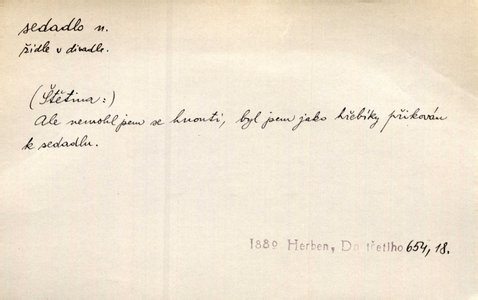 sedadlo n.
židle v divadle.
(Štětina:)
Ale nemohl jsem se hnouti, byl jsem jako hřebíky přikován
k sedadlu.
1889 Herben, Do třetího 654, 18.